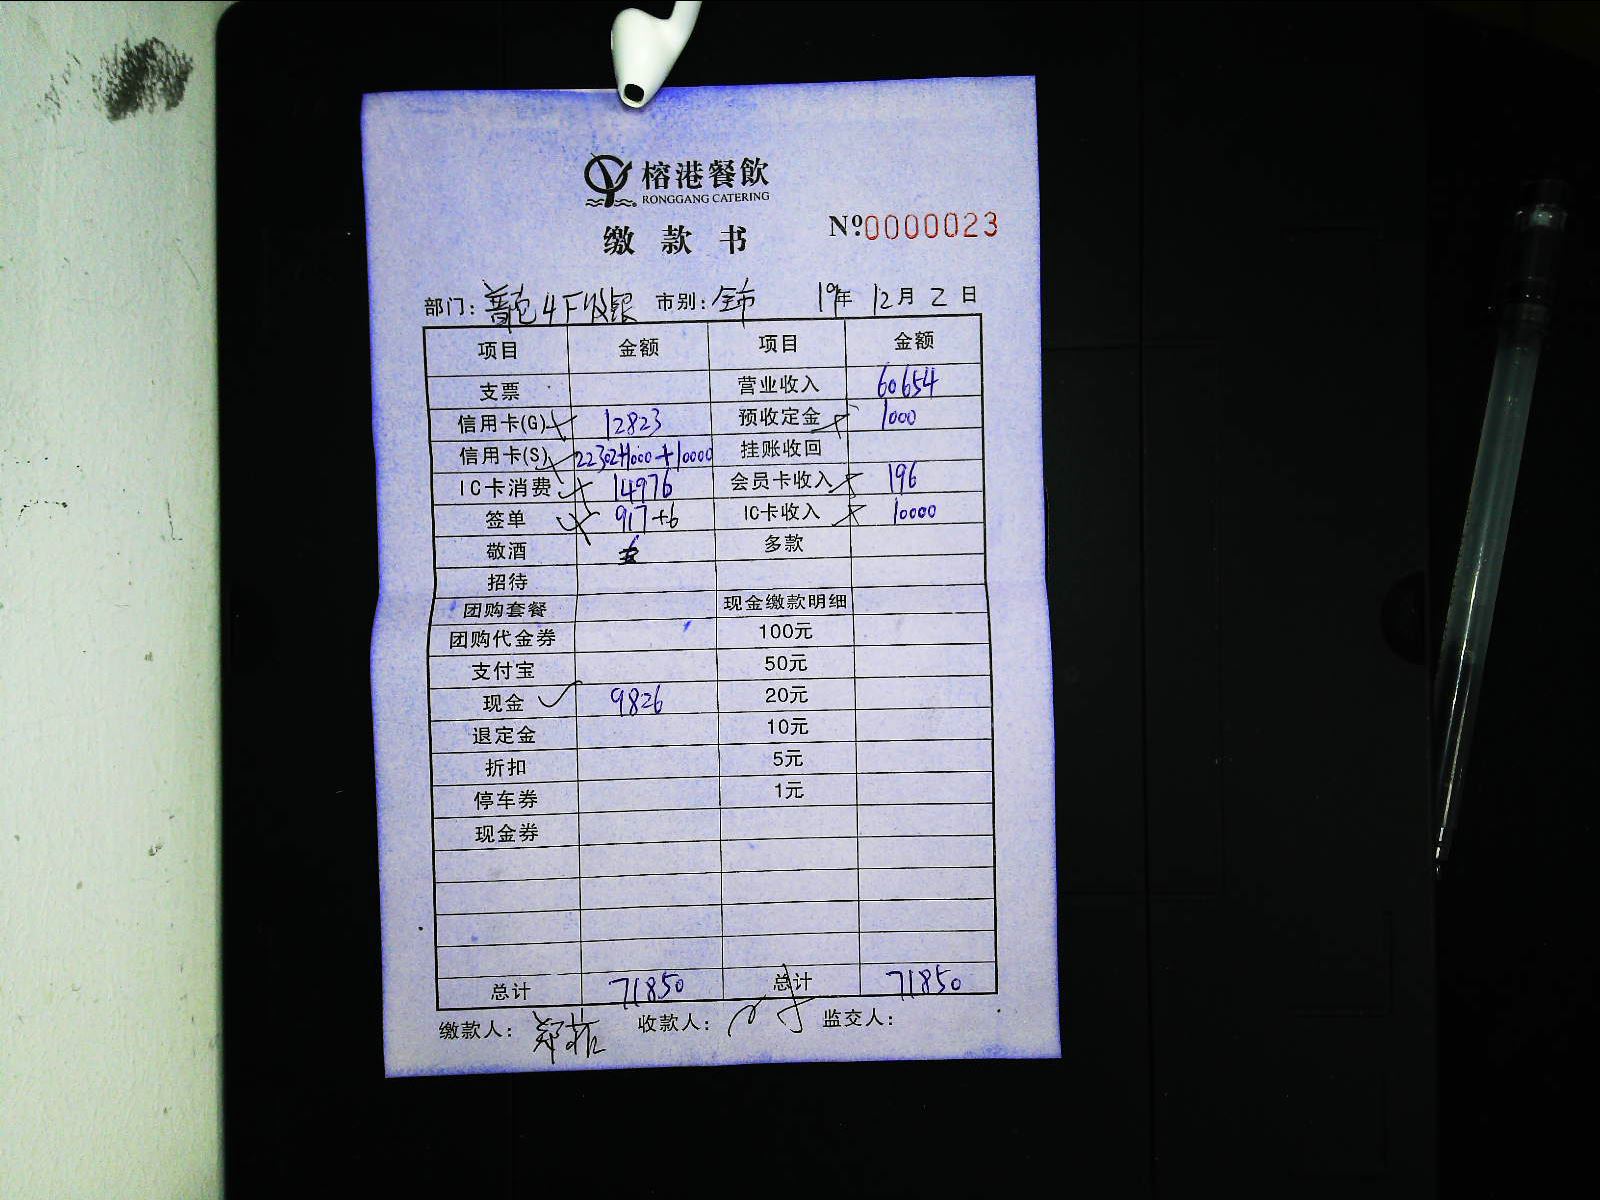 榕港餐飲
RONGGANG CATERING
缴款书 Nº:0000023
部门: 4F收银 市别: 全市 19年 12月 2日
项目 金额 项目 金额
支票 营业收入 60654
信用卡(G) 12823 预收定金 1000
信用卡(S) 22302+1000+10000 挂账收回
IC卡消费 14976 会员卡收入 196
签单 917+6 IC卡收入 10000
敬酒 多款
招待
团购套餐 现金缴款明细
团购代金券 100元
支付宝 50元
现金 9826 20元
退定金 10元
折扣 5元
停车券 1元
现金券
总计 71850 总计 71850
缴款人: 收款人: 监交人: